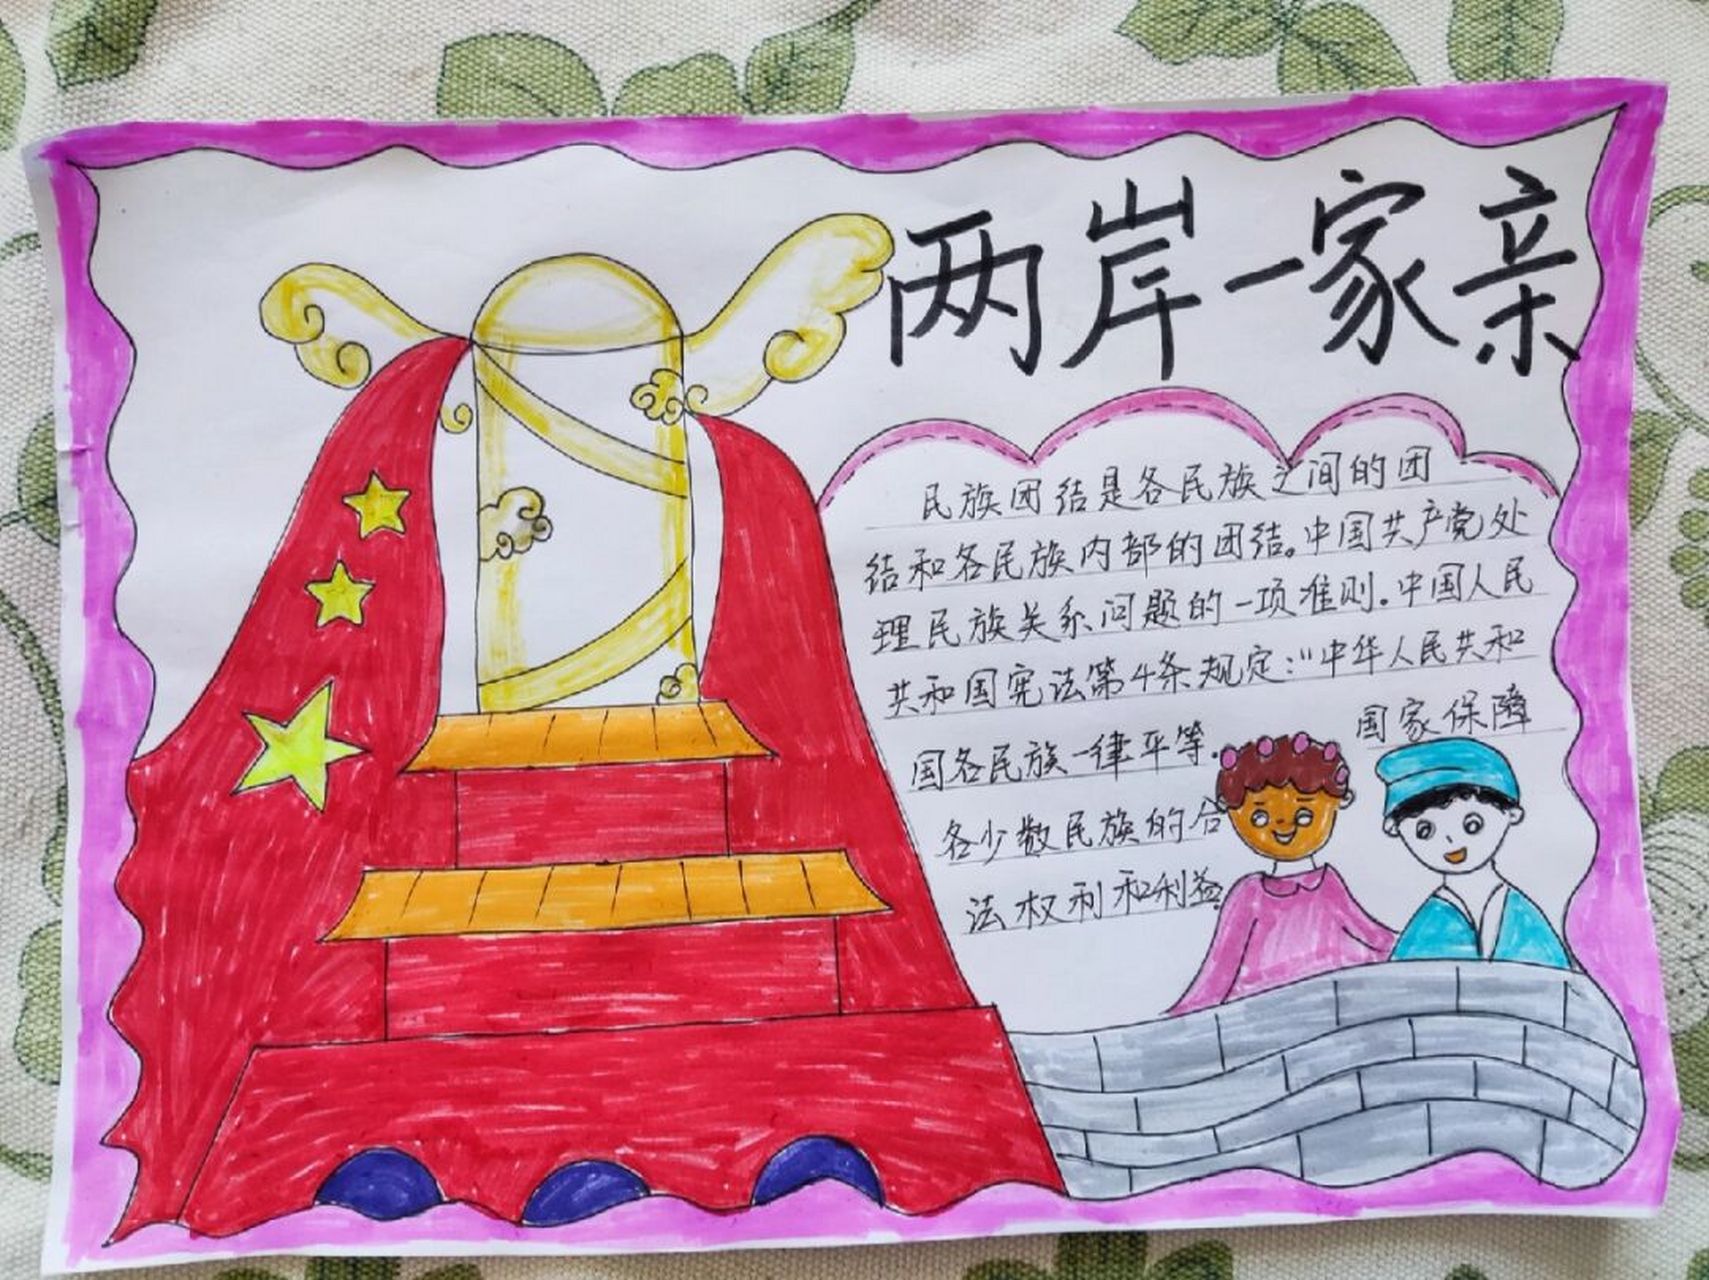 两岸一家亲
民族团结是各民族之间的团
结和各民族内部的团结。中国共产党处
理民族关系问题的一项准则.中国人民
共和国宪法第4条规定:"中华人民共和
国各民族一律平等. 国家保障
各少数民族的合
法权利和利益.